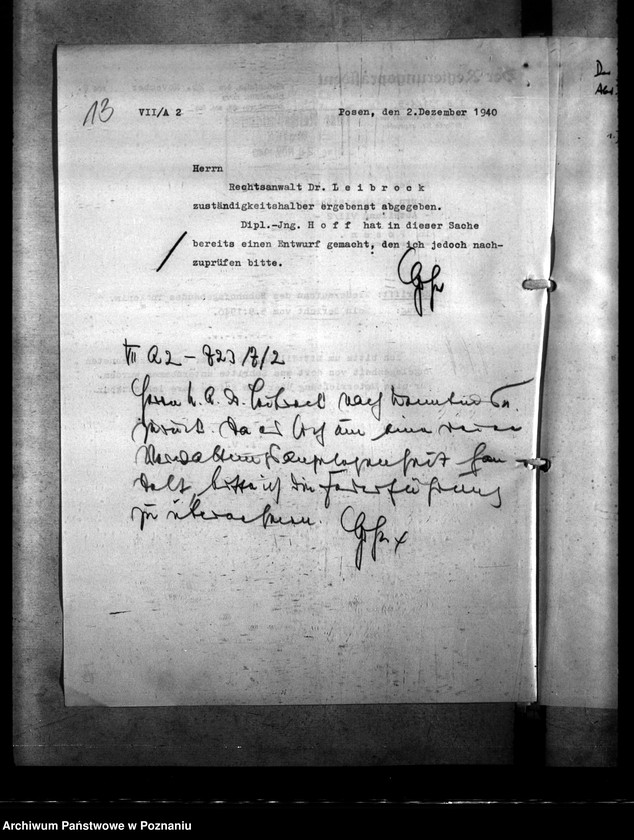 13
VII/A 2 Posen, den 2.Dezember 1940
Herrn
Rechtsanwalt Dr. L e i b r o c k
zuständigkeitshalber ergebenst abgegeben.
Dipl.-Jng. H o f f hat in dieser Sache
bereits einen Entwurf gemacht, den ich jedoch nach-
zuprüfen bitte.
VII A 2 – 723/7/2
Herrn R. A. Dr. Leibrock nach
zurück. Da es sich um eine reine
Verwaltungsangelegenheit han-
delt, bitte ich die Federführung
zu übernehmen.
Archiwum Państwowe w Poznaniu